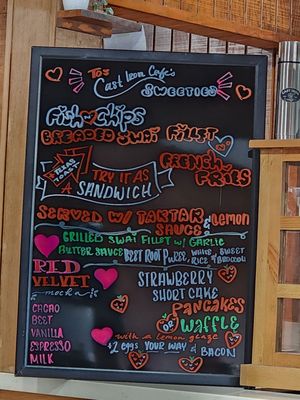 To's
Cast Iron Cafe's
Sweeties
Fish & Chips
Breaded Swai Fillet
W/
French Fries
Texas Toast
Try it as
Sandwich
Served w/ Tartar Sauce & Lemon
Grilled Swai Fillet w/ Garlic
Butter Sauce Beet Root Puree, White Rice & Sweet
Red
Velvet
mocha
Cacao
Beet
Vanilla
Espresso
Milk
Strawberry
Short Cake
Pancakes
or Waffle
with a lemon glaze
+2 eggs your way & Bacon